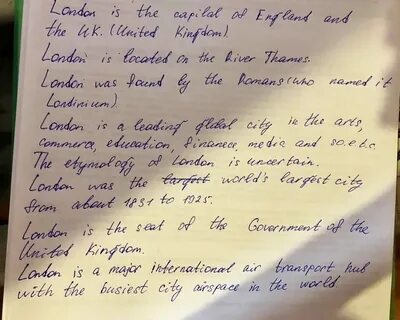 London is the capital of England and
the UK. (United Kingdom)
London is located on the River Thames.
London was found by the Romans (who named it
Londinium)
London is a leading global city in the arts,
commerce, education, finance, media and so.etc.
The etymology of London is uncertain.
London was the largest world's largest city
from about 1831 to 1925.
London is the seat of the Government of the
United Kingdom.
London is a major international air transport hub
with the busiest city airspace in the world